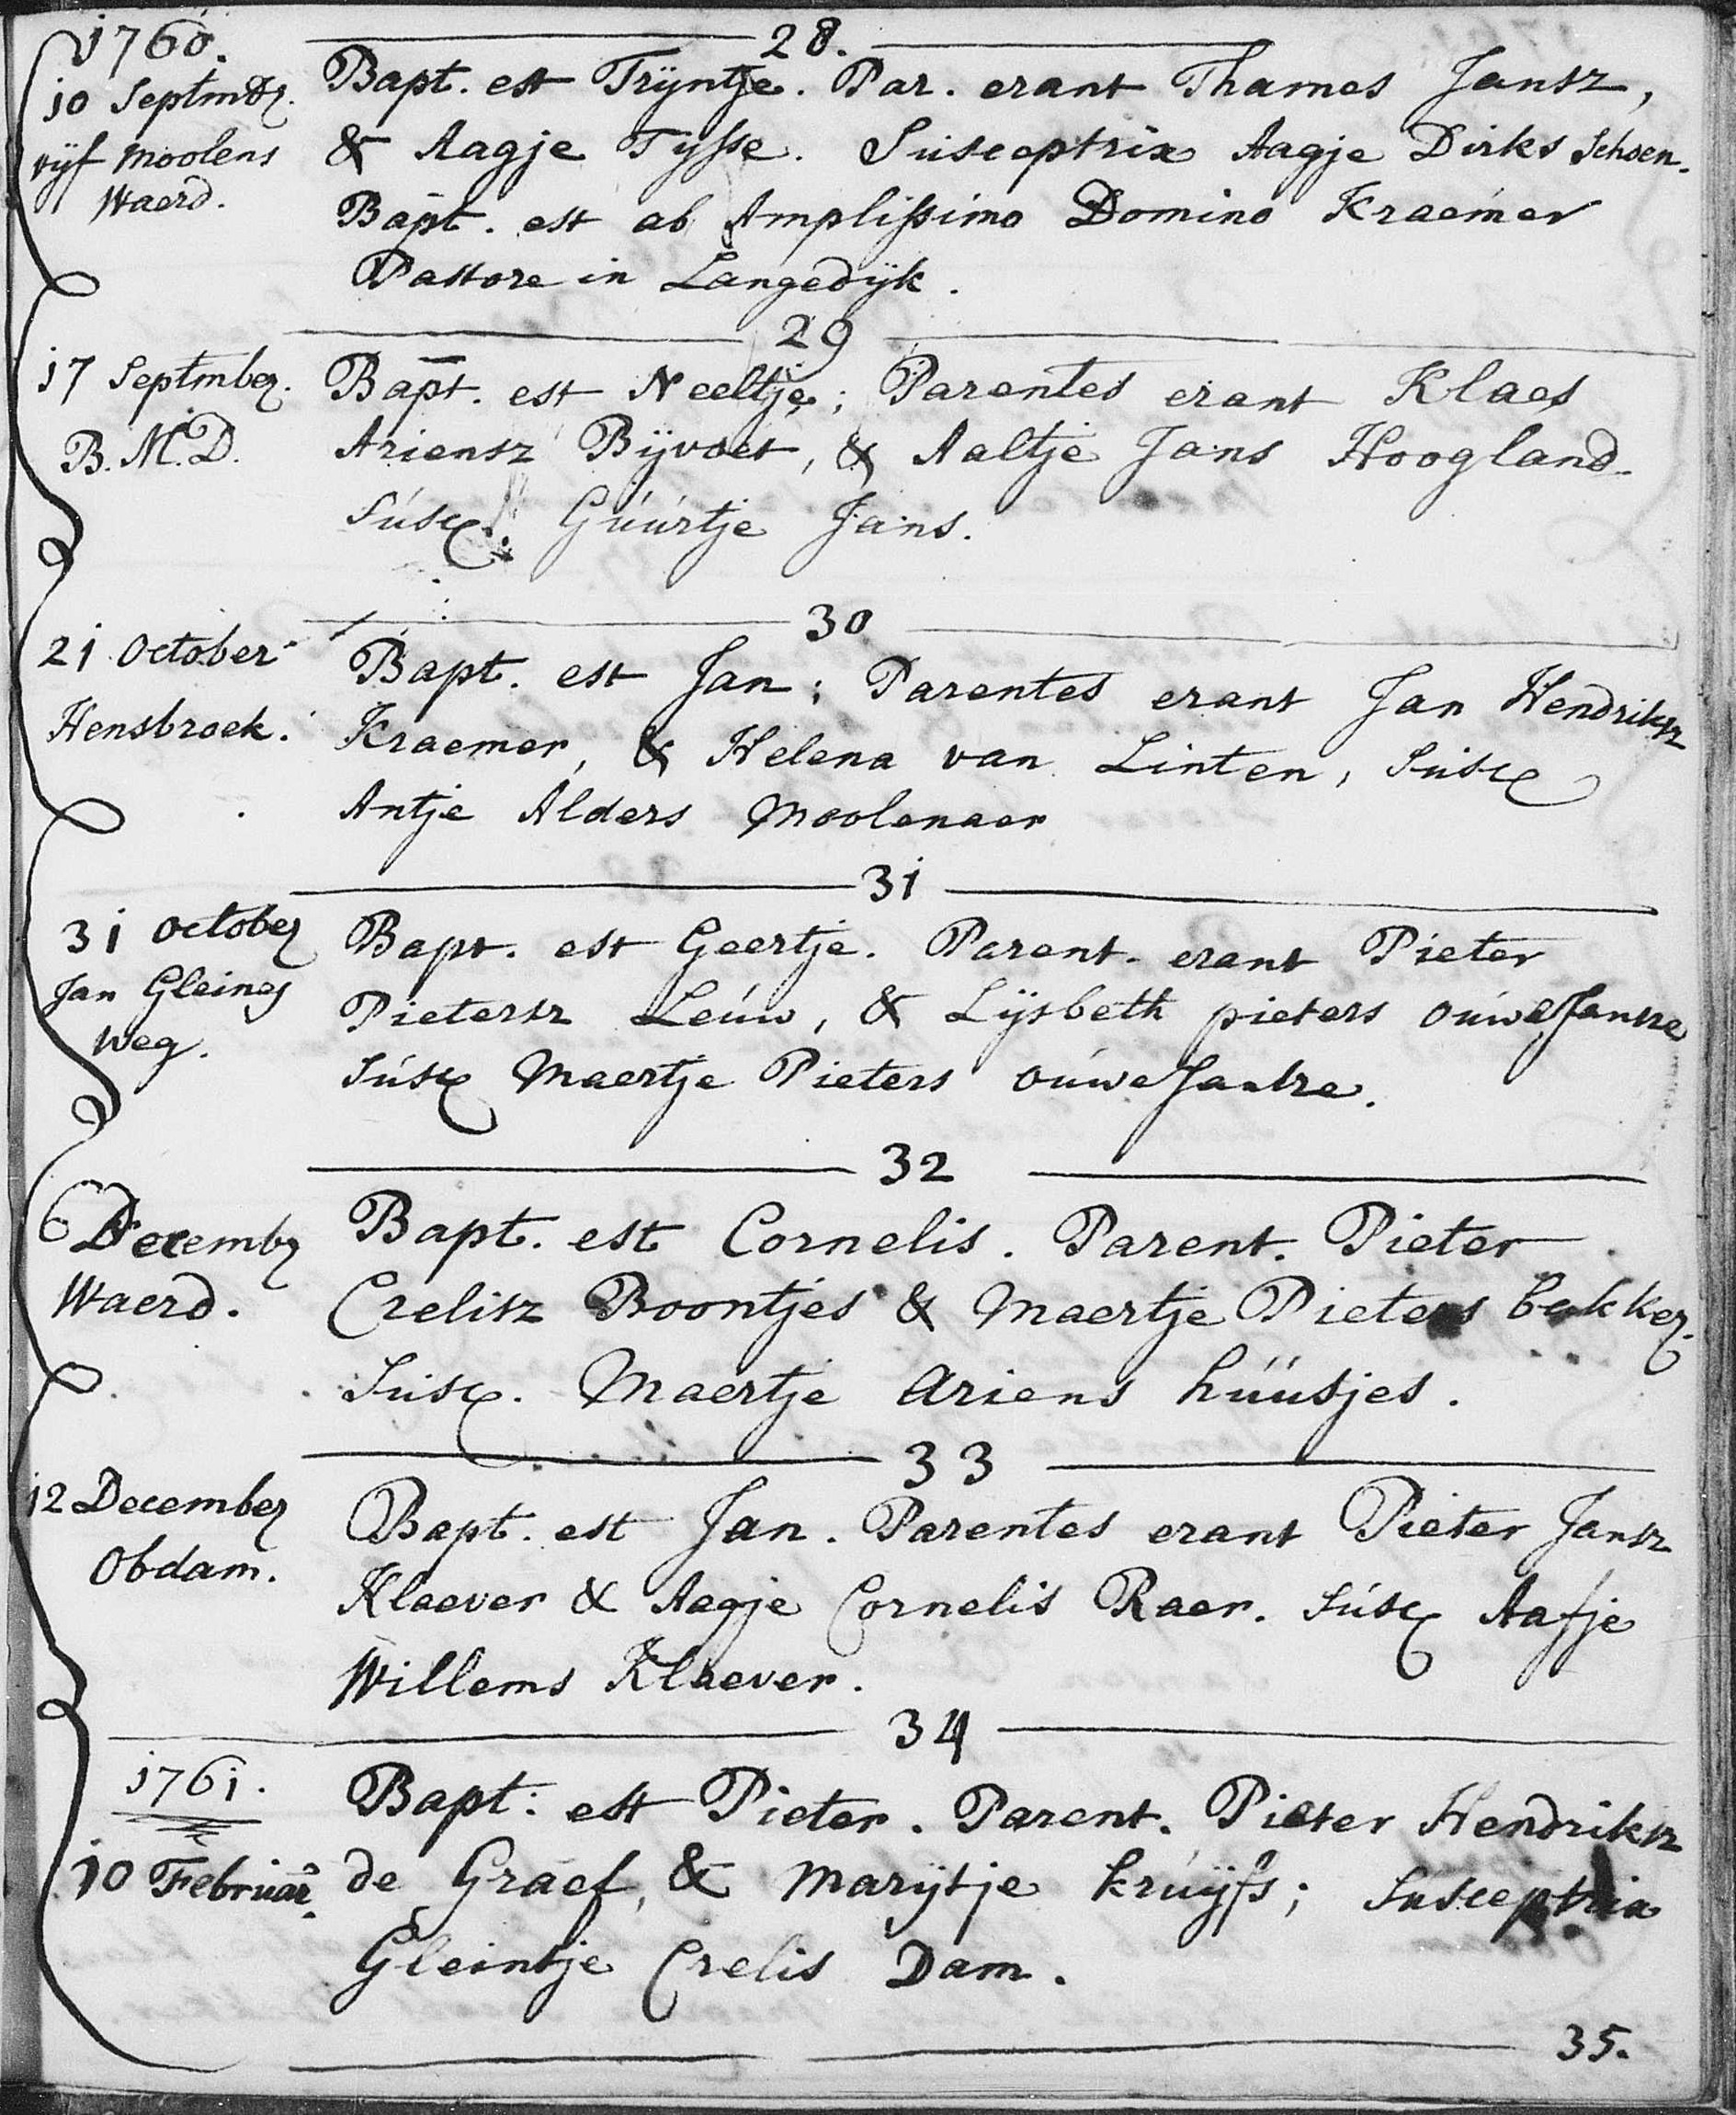 1760.
28.
10 Septmbr.
vijf moolens
Waerd.
Bapt. est Trijntje. Par. erant Thames Jansz,
& Aagje Tysse. Susceptrix Aagje Dirks Schoen.
Bapt. est ab Amplissimo Domino Kraemer
Pastore in Langedijk.
29
17 Septmber.
B. M. D.
Bapt. est Neeltje; Parentes erant Klaes
Ariensz Bijvoet, & Aaltje Jans Hoogland
Susc. Guurtje Jans.
30
21 October
Hensbroek.
Bapt. est Jan; Parentes erant Jan Hendriksz
Kraemer, & Helena van Linten, Susc
Antje Alders Moolenaer
31
31 October
Jan Gleines
weg.
Bapt. est Geertje. Parent. erant Pieter
Pietersz Leúw, & Lijsbeth pieters oúweJantze
Susc Maertje Pieters oúweJantze.
32
6 Decembr
Waerd.
Bapt. est Cornelis. Parent. Pieter
Crelisz Boontjes & Maertje Pieters bakker.
Susc. Maertje Ariens húúsjes.
33
12 December
Obdam.
Bapt. est Jan. Parentes erant Pieter Jansz
Klaever & Aagje Cornelis Raer. Susc Aafje
Willems Klaever.
34
1761.
10 Februar.
Bapt: est Pieter. Parent. Pieter Hendriksz
de Graef, & Marijtje kruijfs; Susceptrix
Gleintje Crelis Dam.
35.